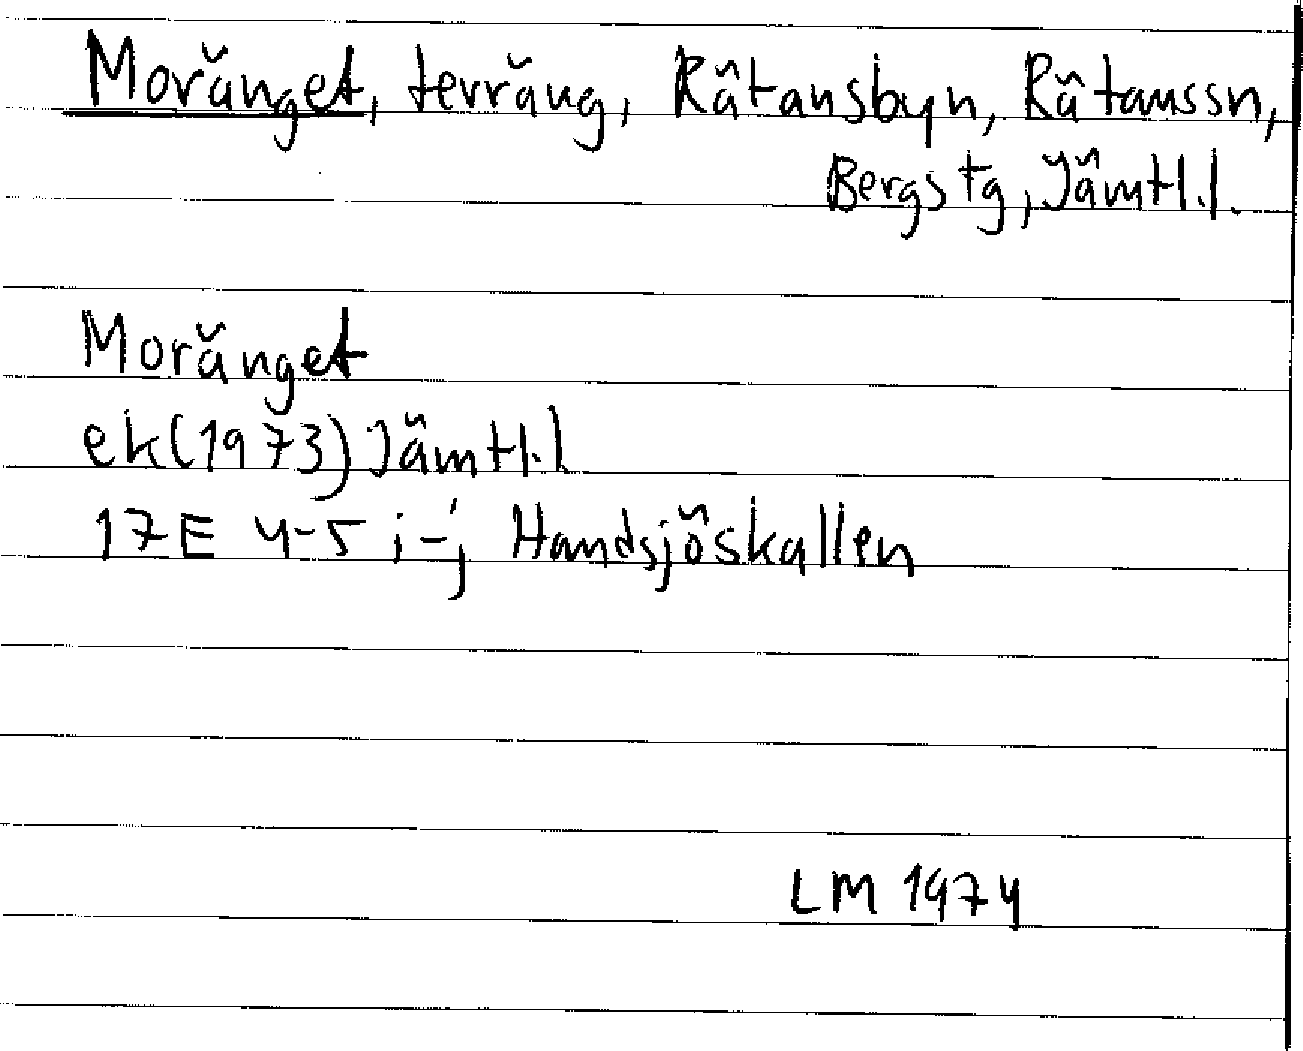 Moränget, terräng, Rätansbyn, Rätanssn,
Bergs tg, Jämtl.l.
Moränget
ek(1973) Jämtl.l
17E 4-5 i-j Handsjöskallen
LM 1974